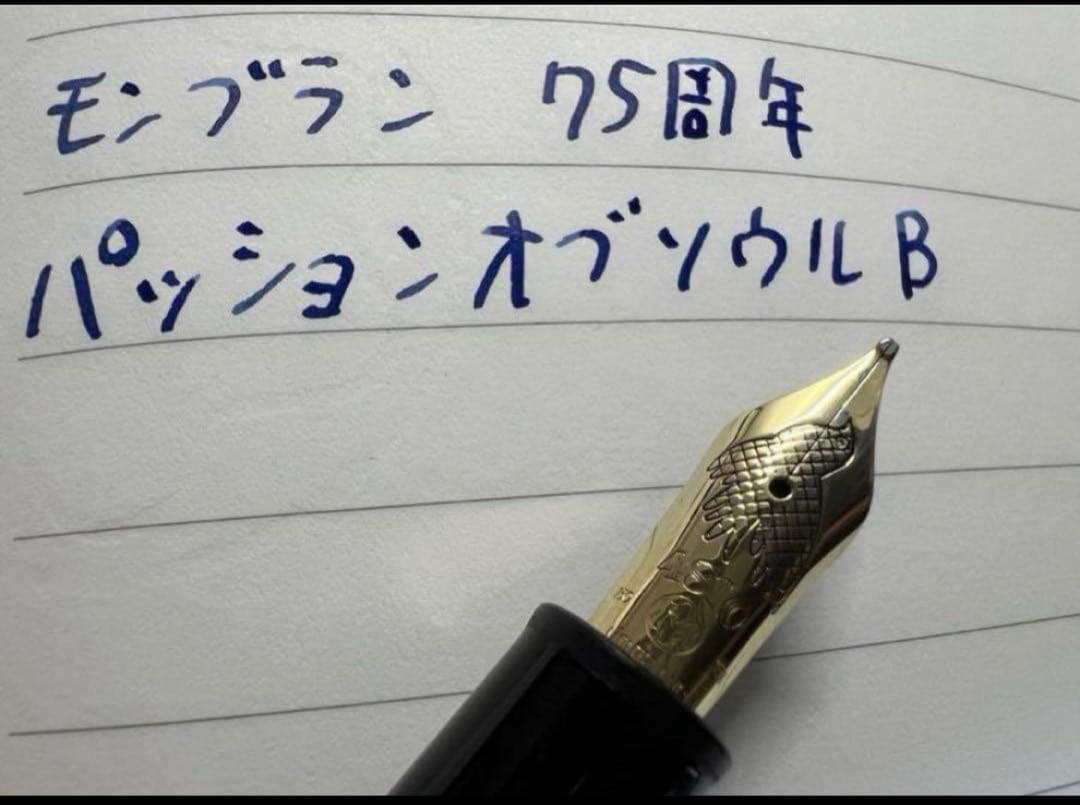 モンブラン 75周年
パッションオブソウル B